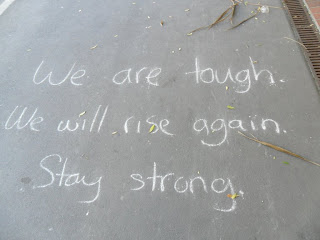 We are tough.
We will rise again.
Stay strong.